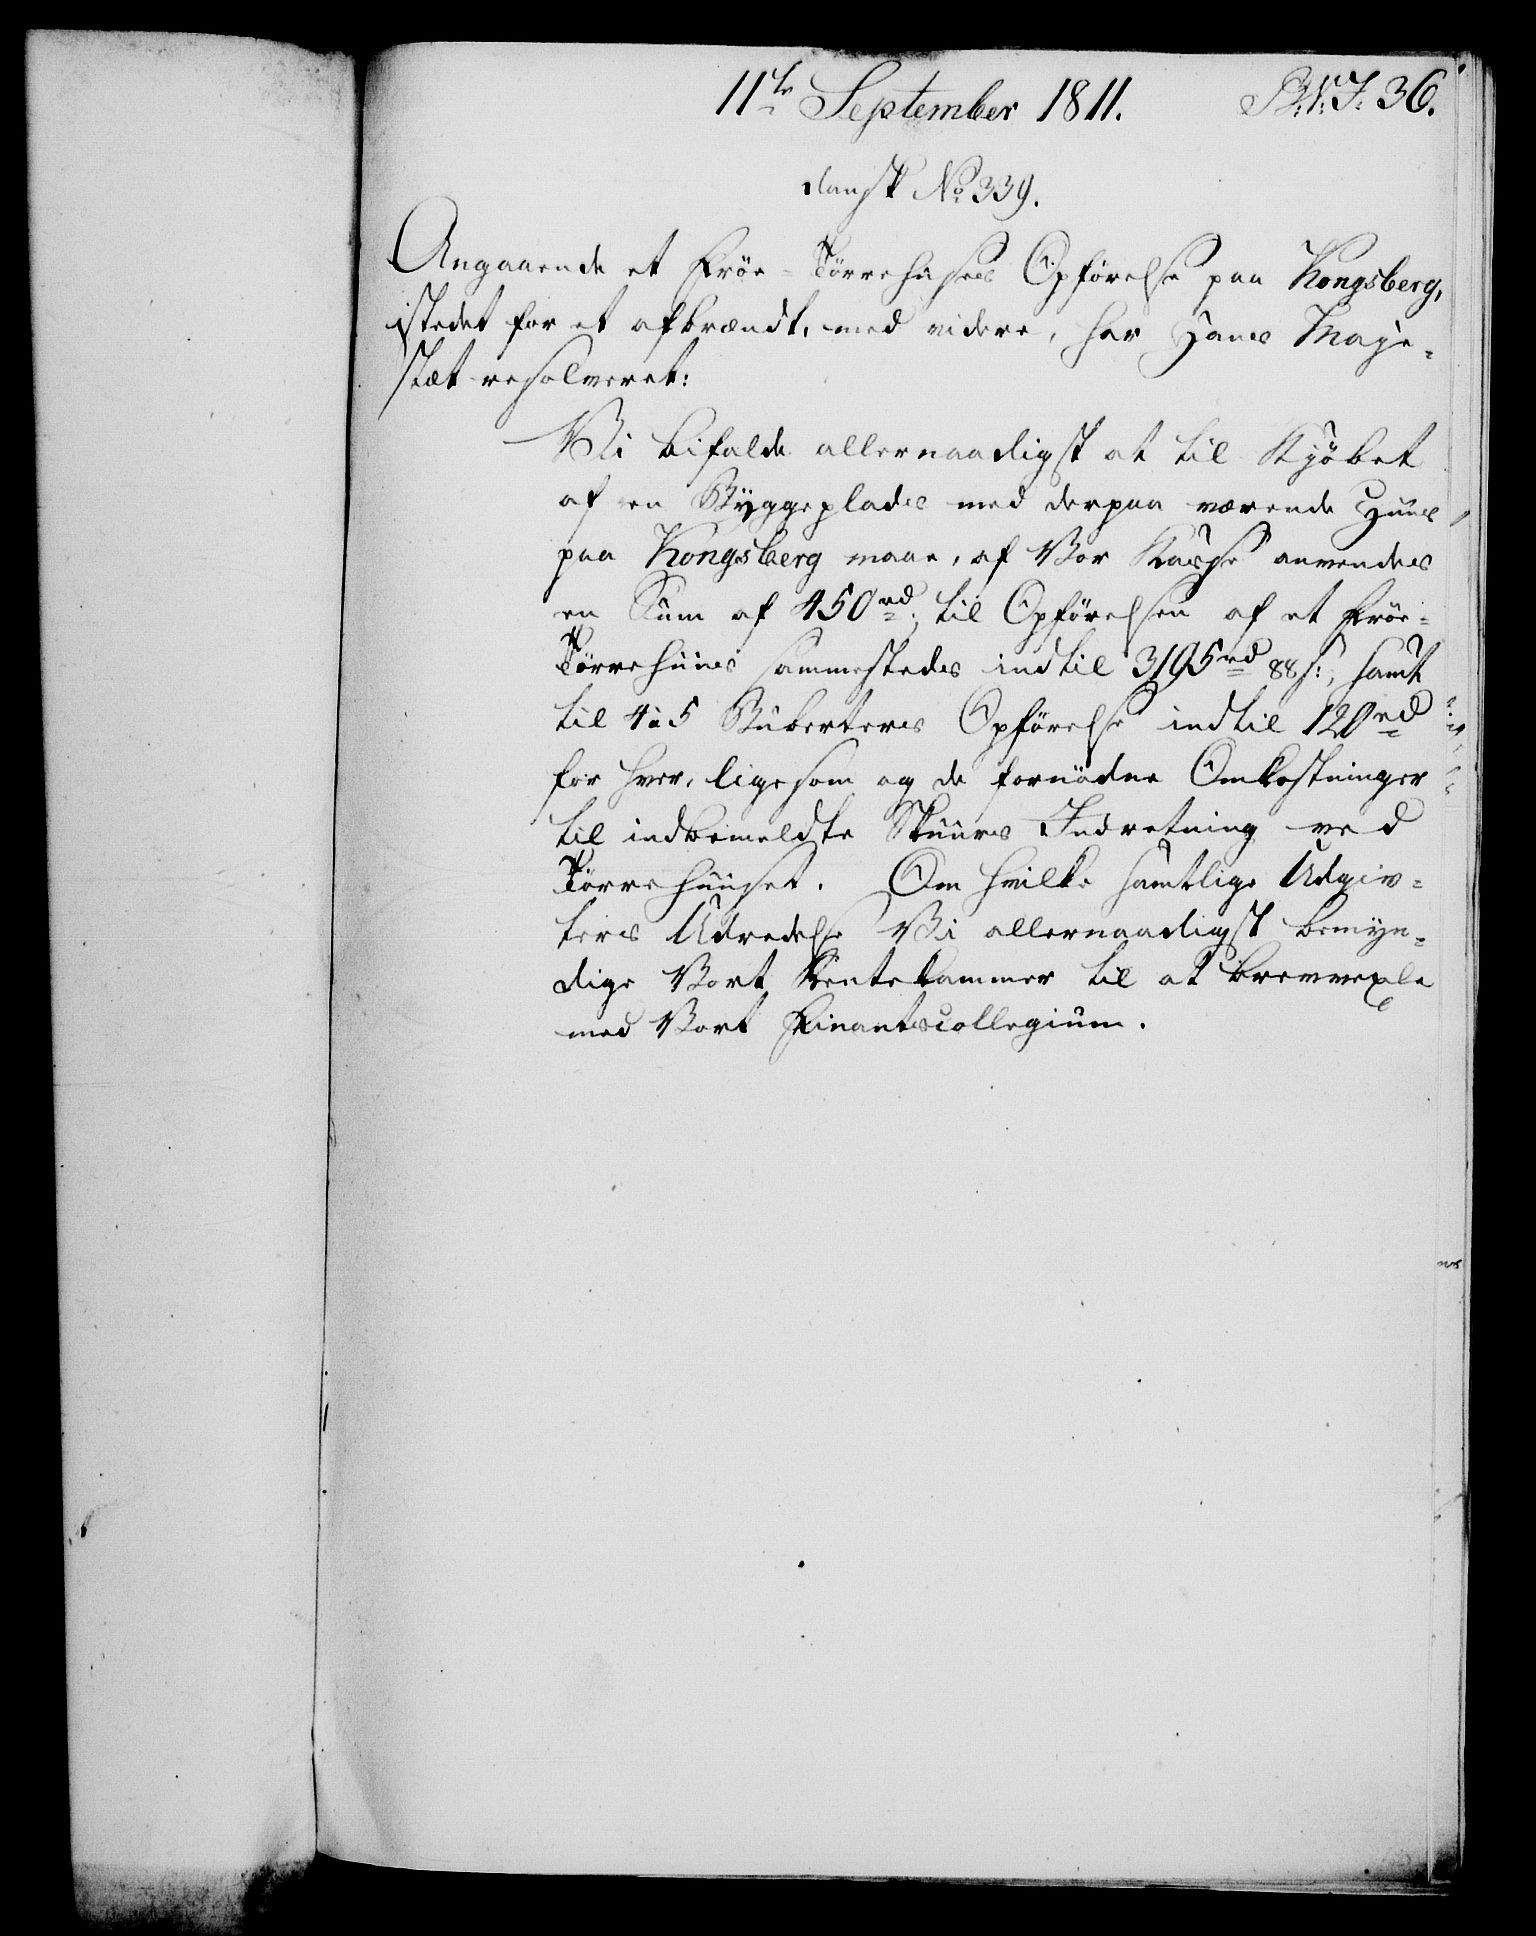 11te September 1811.
36.
dansk No 339.
Angaaende et Frøe-Tørrehuses Opførelse paa Kongsberg,
istedet for et afbrændt, med videre, har Hans Maje-
stæt resolveret:
Vi bifalde allernaadigst at til Kjøbet
af en Byggeplads med derpaa værende Huus
paa Kongsberg maae, af Vor Kasse anvendes
en Sum af 450 rd; til Opførelsen af et Frøe-
Tørrehuus sammestedes indtil 3195 rd 88 s:, samt
til 4 à 5 Opførelse indtil 120 rd
for hver, ligesom og de fornødne Omkostninger
til indbemeldte Skuurs Indretning ved
Tørrehuuset. Om hvilke samtlige Udgiv-
ters Udredelse Vi allernaadigst bemyn-
dige Vort Rentekammer til at brevvexle
med Vort Finantscollegium.